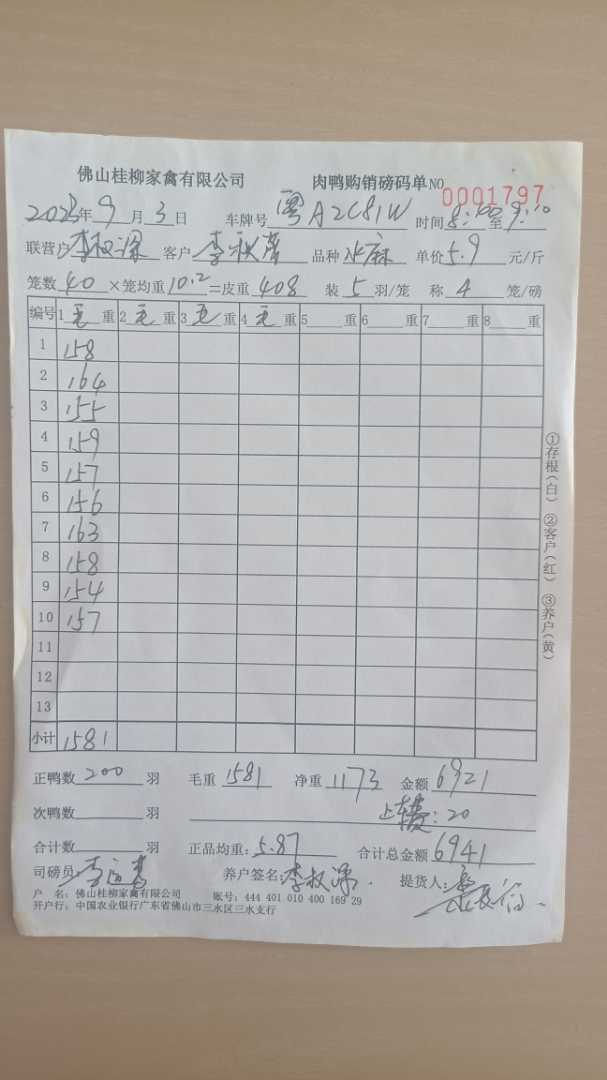 佛山桂柳家禽有限公司 肉鸭购销磅码单 NO 0001797
2023年9月3日 车牌号 粤A2C81W 时间 8:00至9:10
联营户 李权深 客户 李 品种 水麻 单价 5.9 元/斤
笼数 40 ×笼均重 10.2 =皮重 408 装 5 羽/笼 称 4 笼/磅
编号 1 毛 重 2 毛 重 3 毛 重 4 毛 重 5 重 6 重 7 重 8 重
1 158
2 164
3 155
4 159
5 157
6 156
7 163
8 158
9 154
10 157
11
12
13
小计 1581
正鸭数 200 羽 毛重 1581 净重 1173 金额 6921
次鸭数 羽 上车费:20
合计数 羽 正品均重: 5.87 合计总金额 6941
司磅员: 李 养户签名: 李权深 提货人:
户 名: 佛山桂柳家禽有限公司 账号: 444 401 010 400 169 29
开户行: 中国农业银行广东省佛山市三水区三水支行
①存根(白) ②客户(红) ③养户(黄)